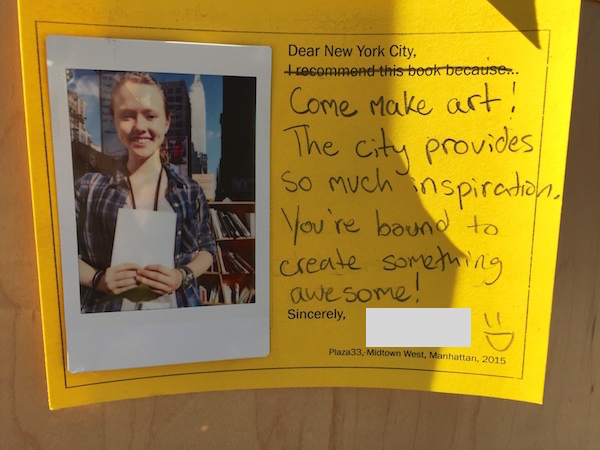 Dear New York City,
I recommend this book because...
Come make art!
The city provides
so much inspiration.
You're bound to
create something
awesome!
Sincerely,
Plaza33, Midtown West, Manhattan, 2015